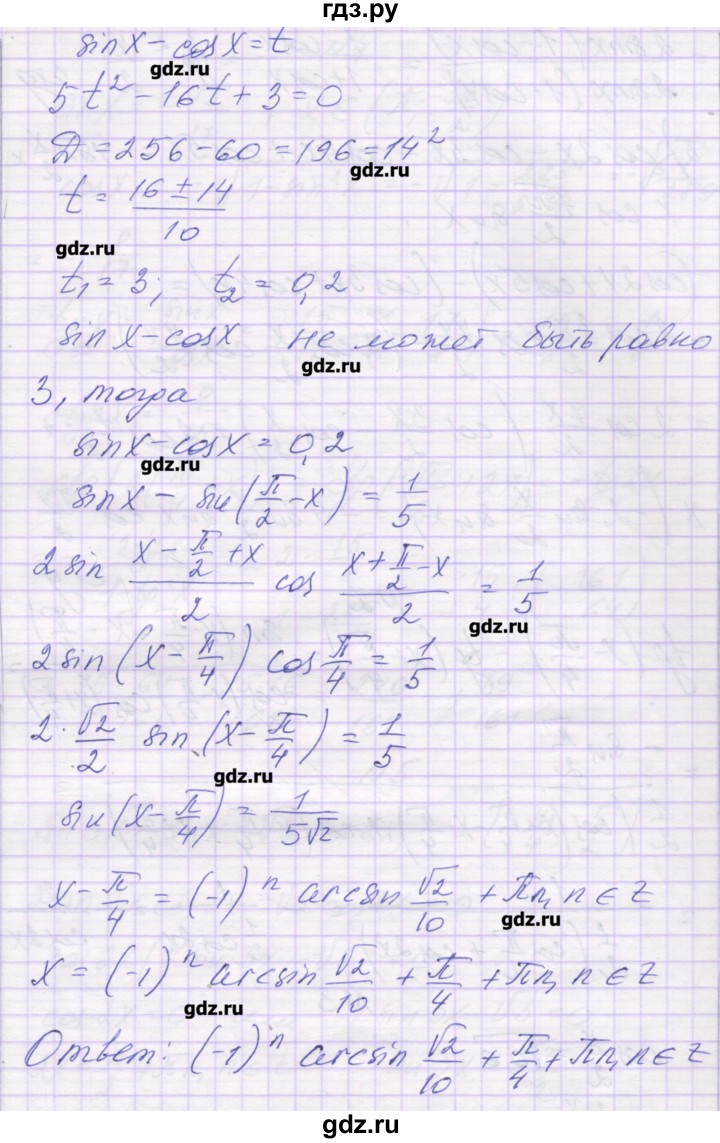 гдз.ру
sinx − cosx = t
gdz.ru
5t² − 16t + 3 = 0
D = 256 − 60 = 196 = 14²
gdz.ru
t = (16 ± 14)/10
gdz.ru
t₁ = 3; t₂ = 0,2
sinx − cosx не может быть равно
gdz.ru
3, тогда
sinx − cosx = 0,2
gdz.ru
sinx − sin(π/2 − x) = 1/5
2 sin (x − π/2 + x)/2 cos (x + π/2 − x)/2 = 1/5
gdz.ru
2 sin(x − π/4) cos π/4 = 1/5
2 · √2/2 sin(x − π/4) = 1/5
gdz.ru
sin(x − π/4) = 1/(5√2)
x − π/4 = (−1)ⁿ arcsin √2/10 + πn, n ∈ Z
gdz.ru
x = (−1)ⁿ arcsin √2/10 + π/4 + πn, n ∈ Z
gdz.ru
Ответ: (−1)ⁿ arcsin √2/10 + π/4 + πn, n ∈ Z
gdz.ru